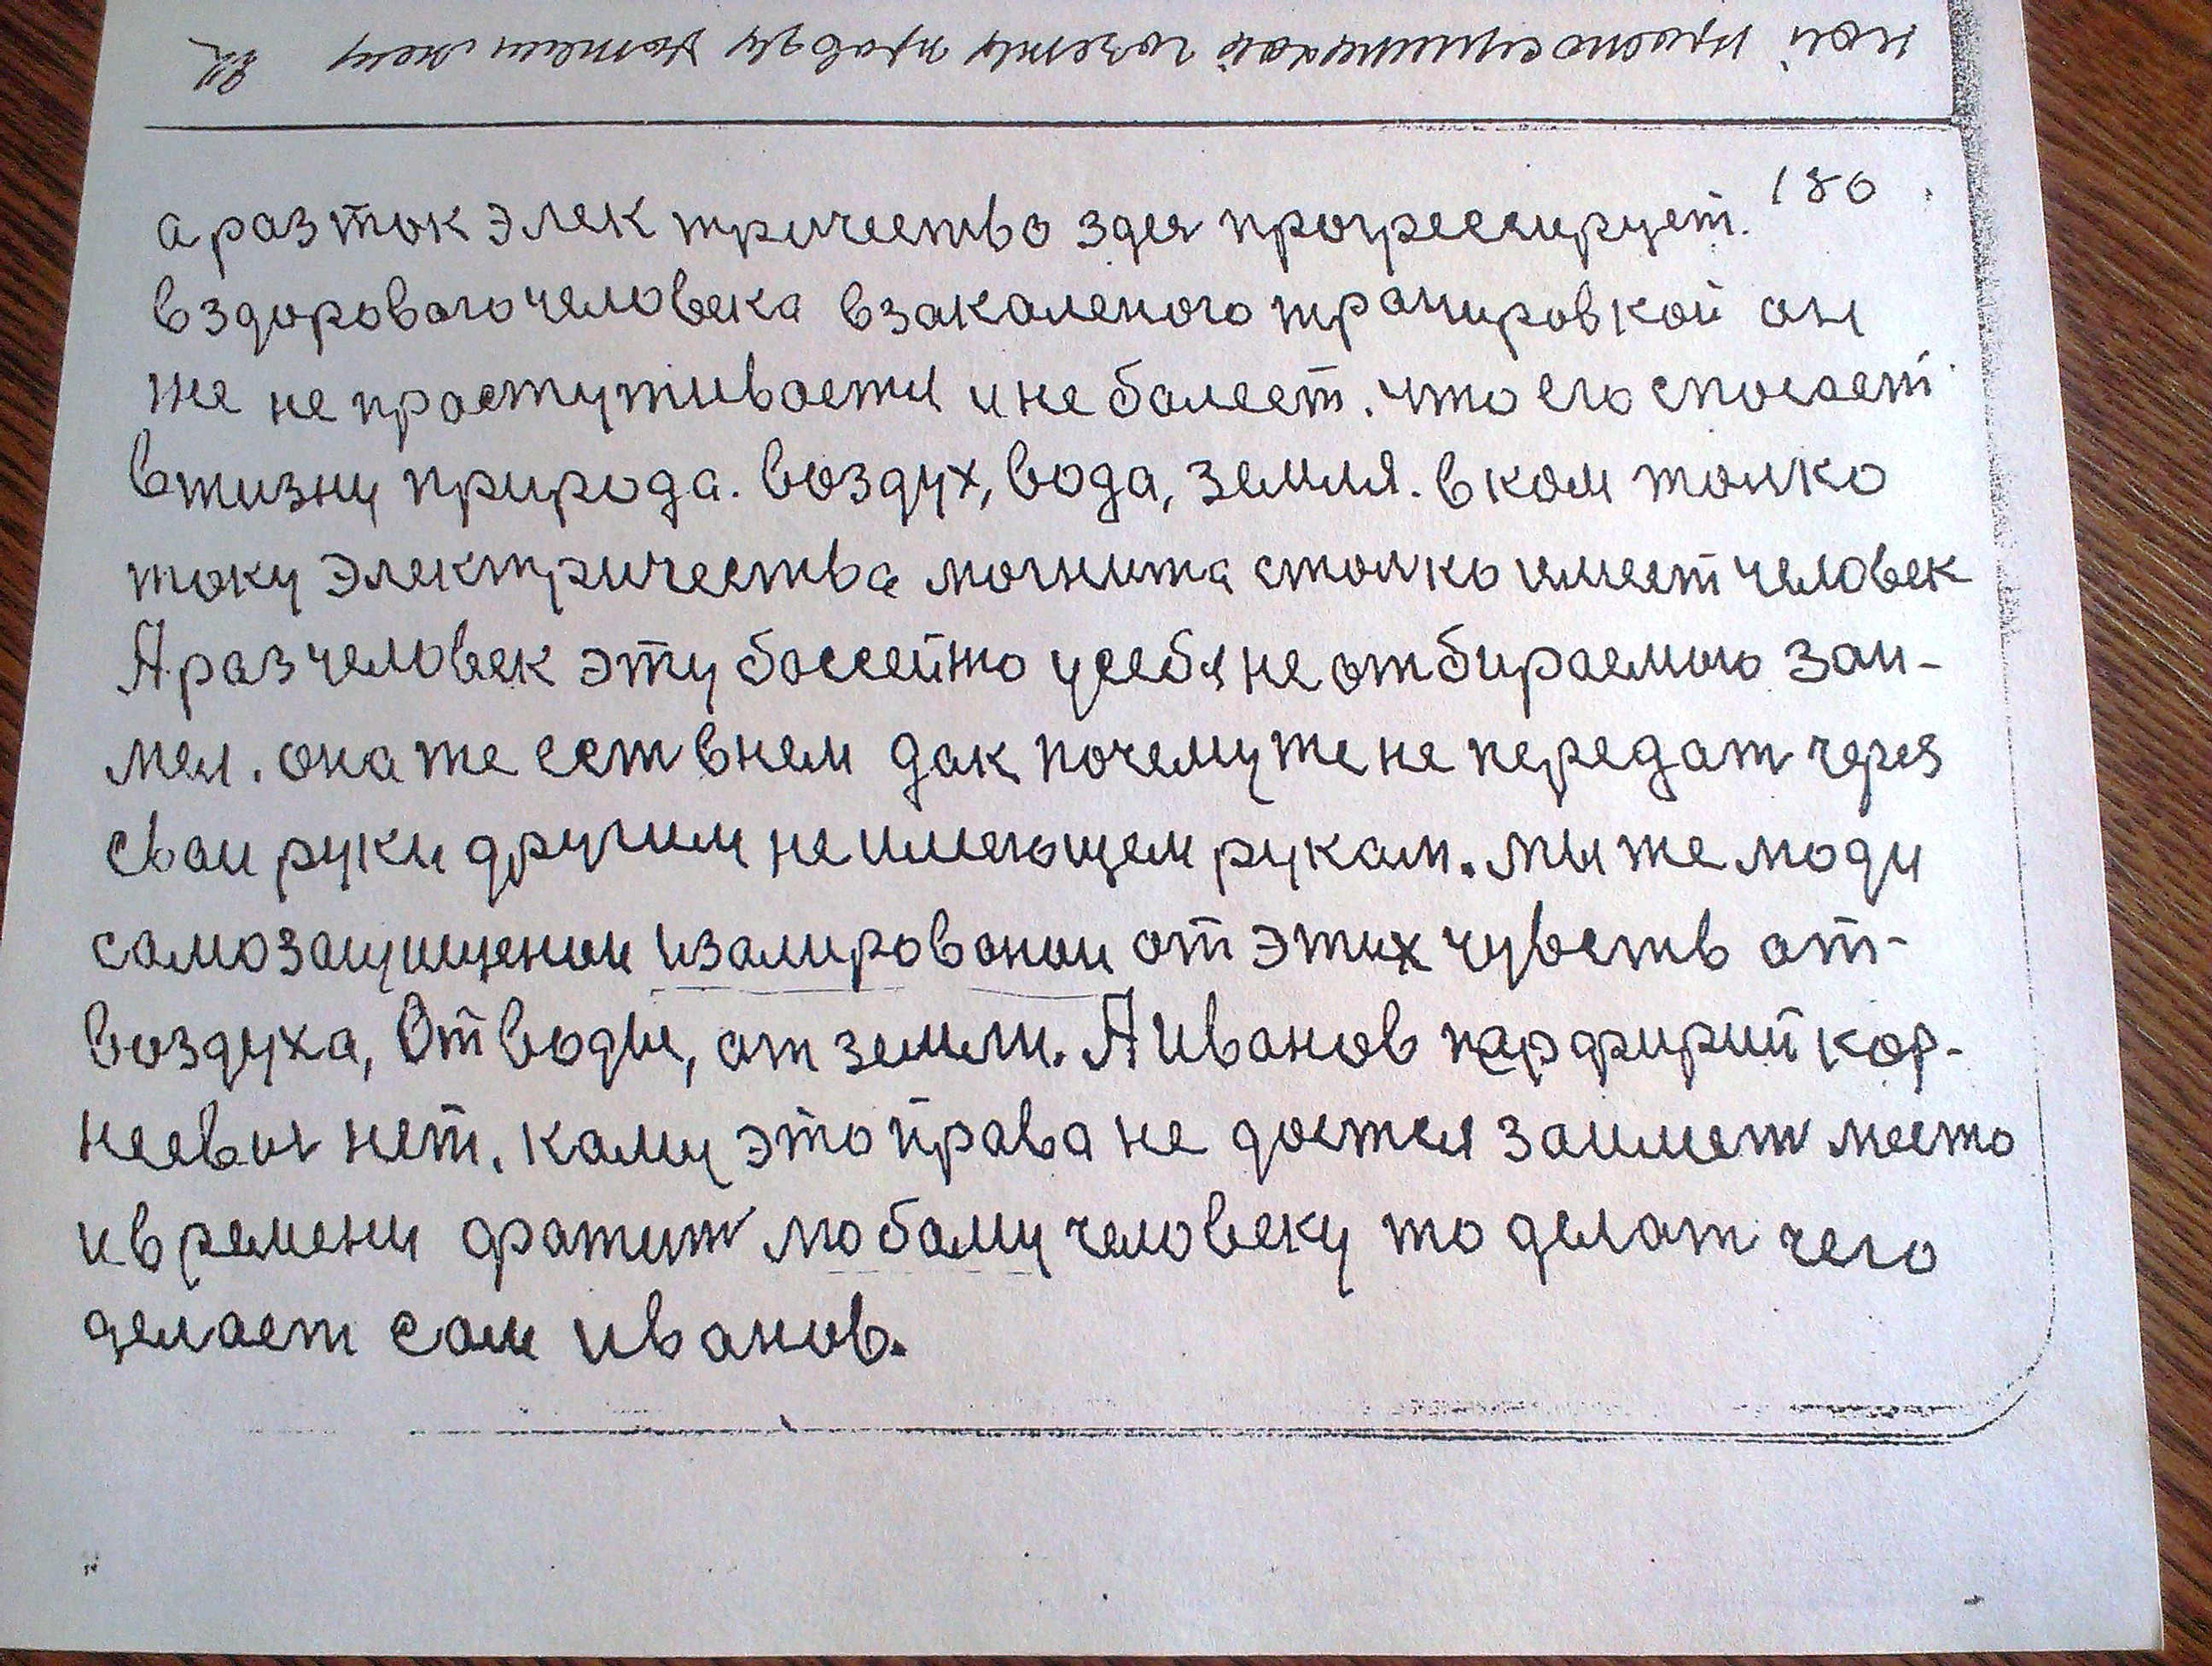 180
а раз ток электричество здея прогрессирует.
в здорового человека взакаленого транировкой он
же не простуживается и не балеет. что его спосает
вжизни природа. воздух, вода, земля. в ком толко
току электричества могнита столко имеет человек
А раз человек эту боссейно у себя не отбираемого заи-
мел. она же ест в нем дак почему же не передат через
сваи руки другим не имеющем рукам. мы же люди
самозащищении изалировании от этих чувств от-
воздуха, От воды, от земли. А Иванов парфирий кор-
неевич нет. каму это права не достся заимет место
и времени фатит любаму человеку то делат чего
делает сам иванов.